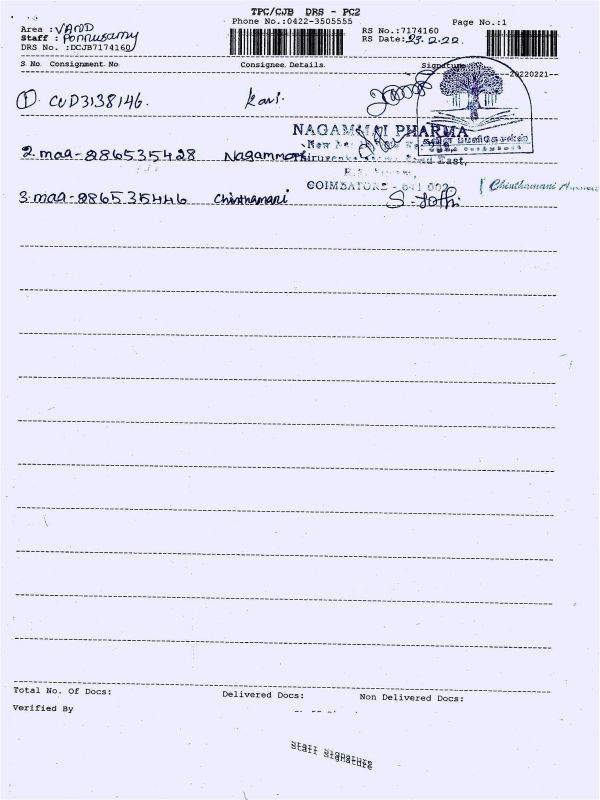 TPC/CJB DRS - PC2
Phone No.:0422-3505555
Page No.:1
Area :
Staff : Ponnusamy
DRS No. :DCJB7174160
RS No.:7174160
RS Date: 23.2.22
S No Consignment No Consignee Details Signature
20220221--
① CUD3138146. Kavi.
NAGAMMAI PHARMA
2. maa-286535428 Nagammai
COIMBATORE - 641 002
3. maa-286535446 Chinthamani S. Jothi
Chinthamani
Total No. Of Docs: Delivered Docs: Non Delivered Docs:
Verified By
Staff Signature